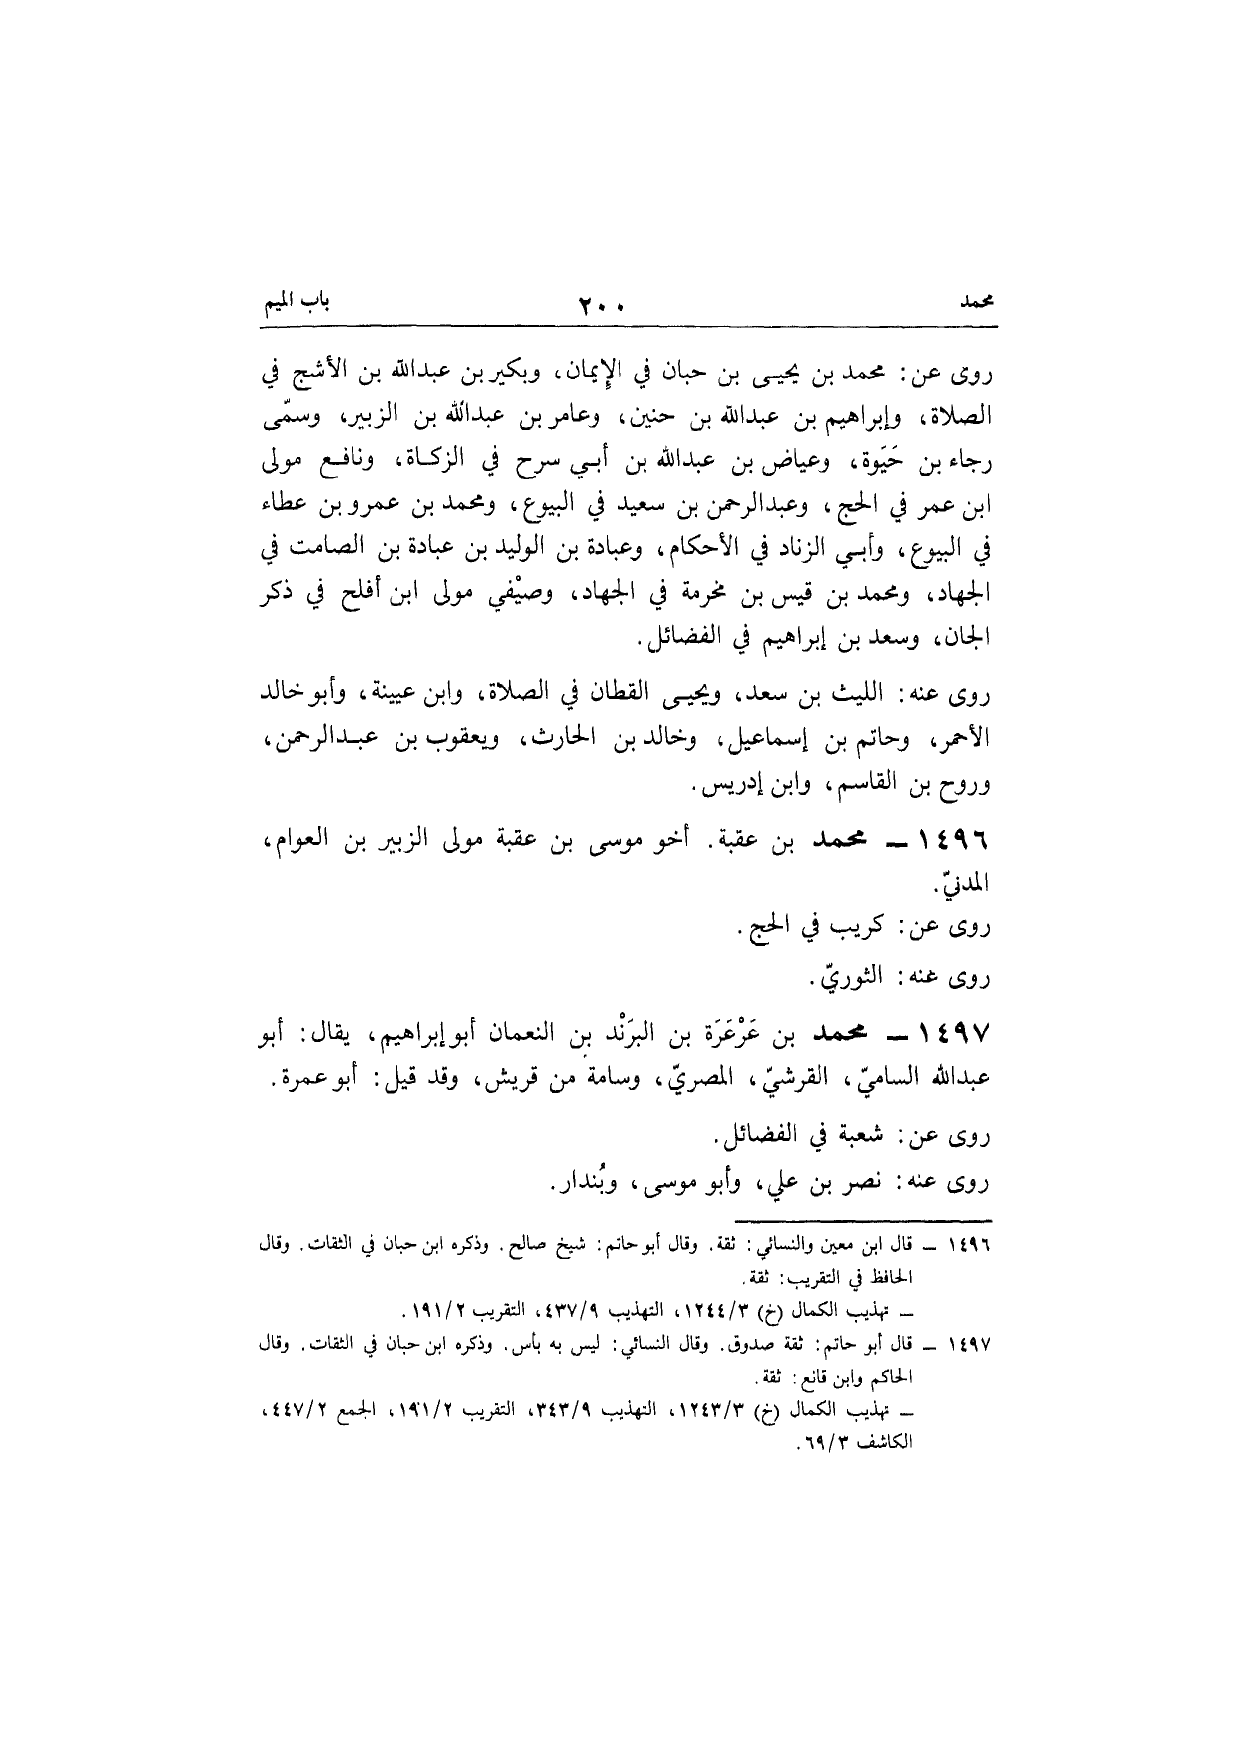 محمد ٢٠٠ باب الميم
روى عن: محمد بن يحيـى بن حبان في الإيمان، وبكير بن عبدالله بن الأشج في
الصلاة، وإبراهيم بن عبدالله بن حنين، وعامر بن عبدالله بن الزبير، وسمّى
رجاء بن حَيَوة، وعياض بن عبدالله بن أبـي سرح في الزكـاة، ونافـع مولى
ابن عمر في الحج، وعبدالرحمن بن سعيد في البيوع، ومحمد بن عمرو بن عطاء
في البيوع، وأبـي الزناد في الأحكام، وعبادة بن الوليد بن عبادة بن الصامت في
الجهاد، ومحمد بن قيس بن مخرمة في الجهاد، وصيْفي مولى ابن أفلح في ذكر
الجان، وسعد بن إبراهيم في الفضائل.
روى عنه: الليث بن سعد، ويحيـى القطان في الصلاة، وابن عيينة، وأبو خالد
الأحمر، وحاتم بن إسماعيل، وخالد بن الحارث، ويعقوب بن عبـدالرحمن،
وروح بن القاسم، وابن إدريس.
١٤٩٦ ـ محمد بن عقبة. أخو موسى بن عقبة مولى الزبير بن العوام،
المدنيّ.
روى عن: كريب في الحج.
روى عنه: الثوريّ.
١٤٩٧ ـ محمد بن عَرْعَرَة بن البرَنْد بن النعمان أبو إبراهيم، يقال: أبو
عبدالله الساميّ، القرشيّ، المصريّ، وسامة من قريش، وقد قيل: أبو عمرة.
روى عن: شعبة في الفضائل.
روى عنه: نصر بن علي، وأبو موسى، وبُندار.
١٤٩٦ ـ قال ابن معين والنسائي: ثقة. وقال أبو حاتم: شيخ صالح. وذكره ابن حبان في الثقات. وقال
الحافظ في التقريب: ثقة.
ـ تهذيب الكمال (خ) ١٢٤٤/٣، التهذيب ٤٣٧/٩، التقريب ١٩١/٢.
١٤٩٧ ـ قال أبو حاتم: ثقة صدوق. وقال النسائي: ليس به بأس. وذكره ابن حبان في الثقات. وقال
الحاكم وابن قانع: ثقة.
ـ تهذيب الكمال (خ) ١٢٤٣/٣، التهذيب ٣٤٣/٩، التقريب ١٩١/٢، الجمع ٤٤٧/٢،
الكاشف ٦٩/٣.